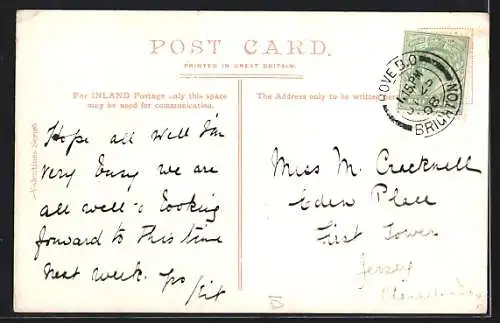 POST CARD.
PRINTED IN GREAT BRITAIN.
For INLAND Postage only this space
may be used for communication.
The Address only to be written
Valentines Series
HOVE B.O.
BRIGHTON
08
Hope all well I'm
very busy we are
all well & looking
forward to this time
next week.
Miss M. Cracknell
Eden Place
First Tower
Jersey